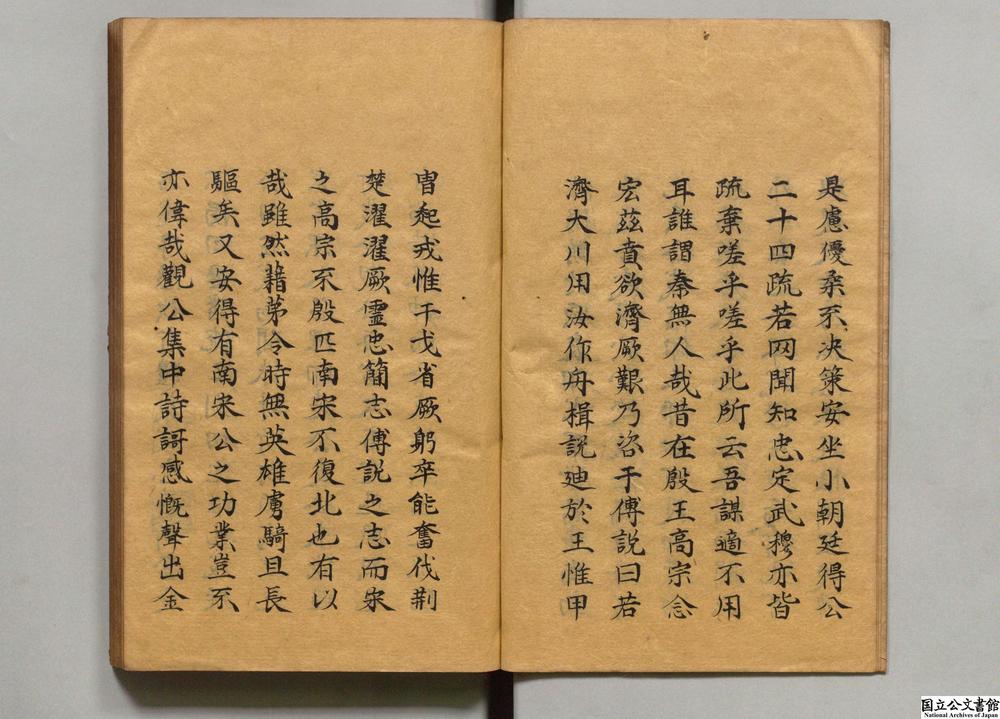 是慮優柔不决策安坐小朝廷得公
二十四疏若网聞知忠定武穆亦皆
疏棄嗟乎嗟乎此所云吾謀適不用
耳誰謂秦無人哉昔在殷王高宗念
宏茲賁欲濟厥艱乃咨于傅說曰若
濟大川用汝作舟楫說廸於王惟甲
冑起戎惟干戈省厥躬卒能奮伐荆
楚濯濯厥靈忠簡志傅說之志而宋
之高宗不殷匹南宋不復北也有以
哉雖然藉苐令時無英雄虜騎且長
驅矣又安得有南宋公之功業豈不
亦偉哉觀公集中詩謌感慨聲出金
国立公文書館
National Archives of Japan